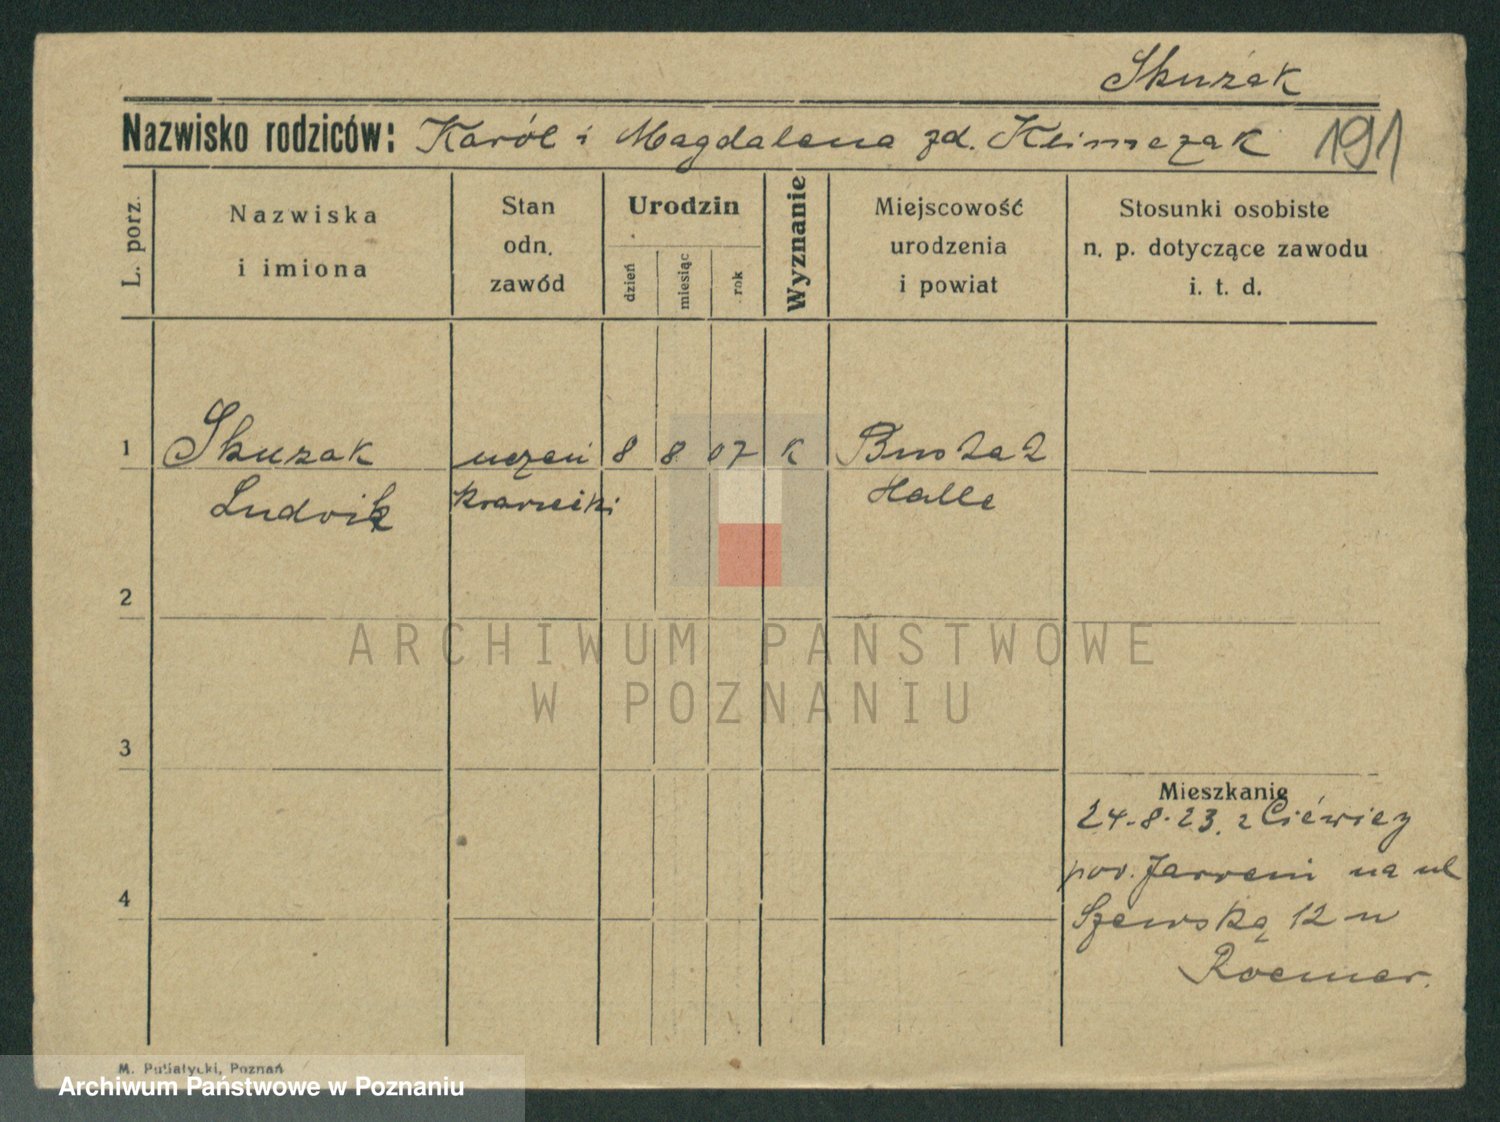 Skuzak
Nazwisko rodziców: Karól i Magdalena zd. Klimczak 191
L. porz.
Nazwiska
i imiona
Stan
odn.
zawód
Urodzin
dzień
miesiąc
rok
Wyznanie
Miejscowość
urodzenia
i powiat
Stosunki osobiste
n. p. dotyczące zawodu
i. t. d.
1 Skuzak uczeń 8 8 07 k
Ludvik krawiecki Halle
2
3
4
Mieszkanie
24-8-23. z
pow. na ul
Szewską 12 u
Roemer.
ARCHIWUM PAŃSTWOWE
W POZNANIU
M. Putiatycki, Poznań
Archiwum Państwowe w Poznaniu